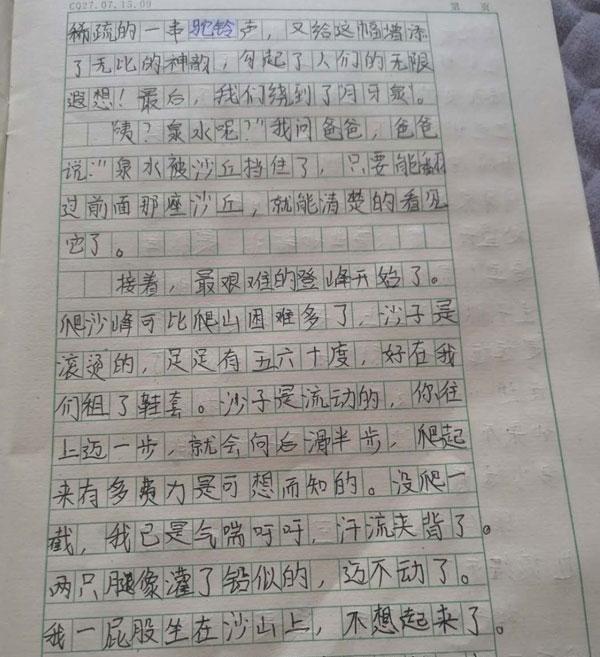 CQ27.07.15.09 第 页
稀疏的一串驼铃声，又给这幅增添
了无比的神韵，勾起了人们的无限
遐想！最后，我们绕到了月牙泉。
咦？泉水呢？"我问爸爸，爸爸
说："泉水被沙丘挡住了，只要能翻
过前面那座沙丘，就能清楚的看见
它了。
接着，最艰难的登峰开始了。
爬沙峰可比爬山困难多了，沙子是
滚烫的，足足有五六十度，好在我
们租了鞋套。沙子是流动的，你往
上迈一步，就会向后滑半步，爬起
来有多费力是可想而知的。没爬一
截，我已是气喘吁吁，汗流夹背了。
两只腿像灌了铅似的，迈不动了。
我一屁股坐在沙山上，不想起来了。